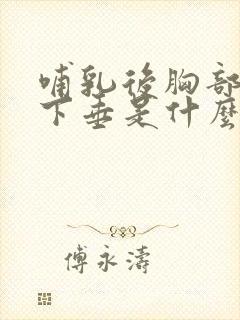 哺乳後胸部
下垂是什麼
傅永濤